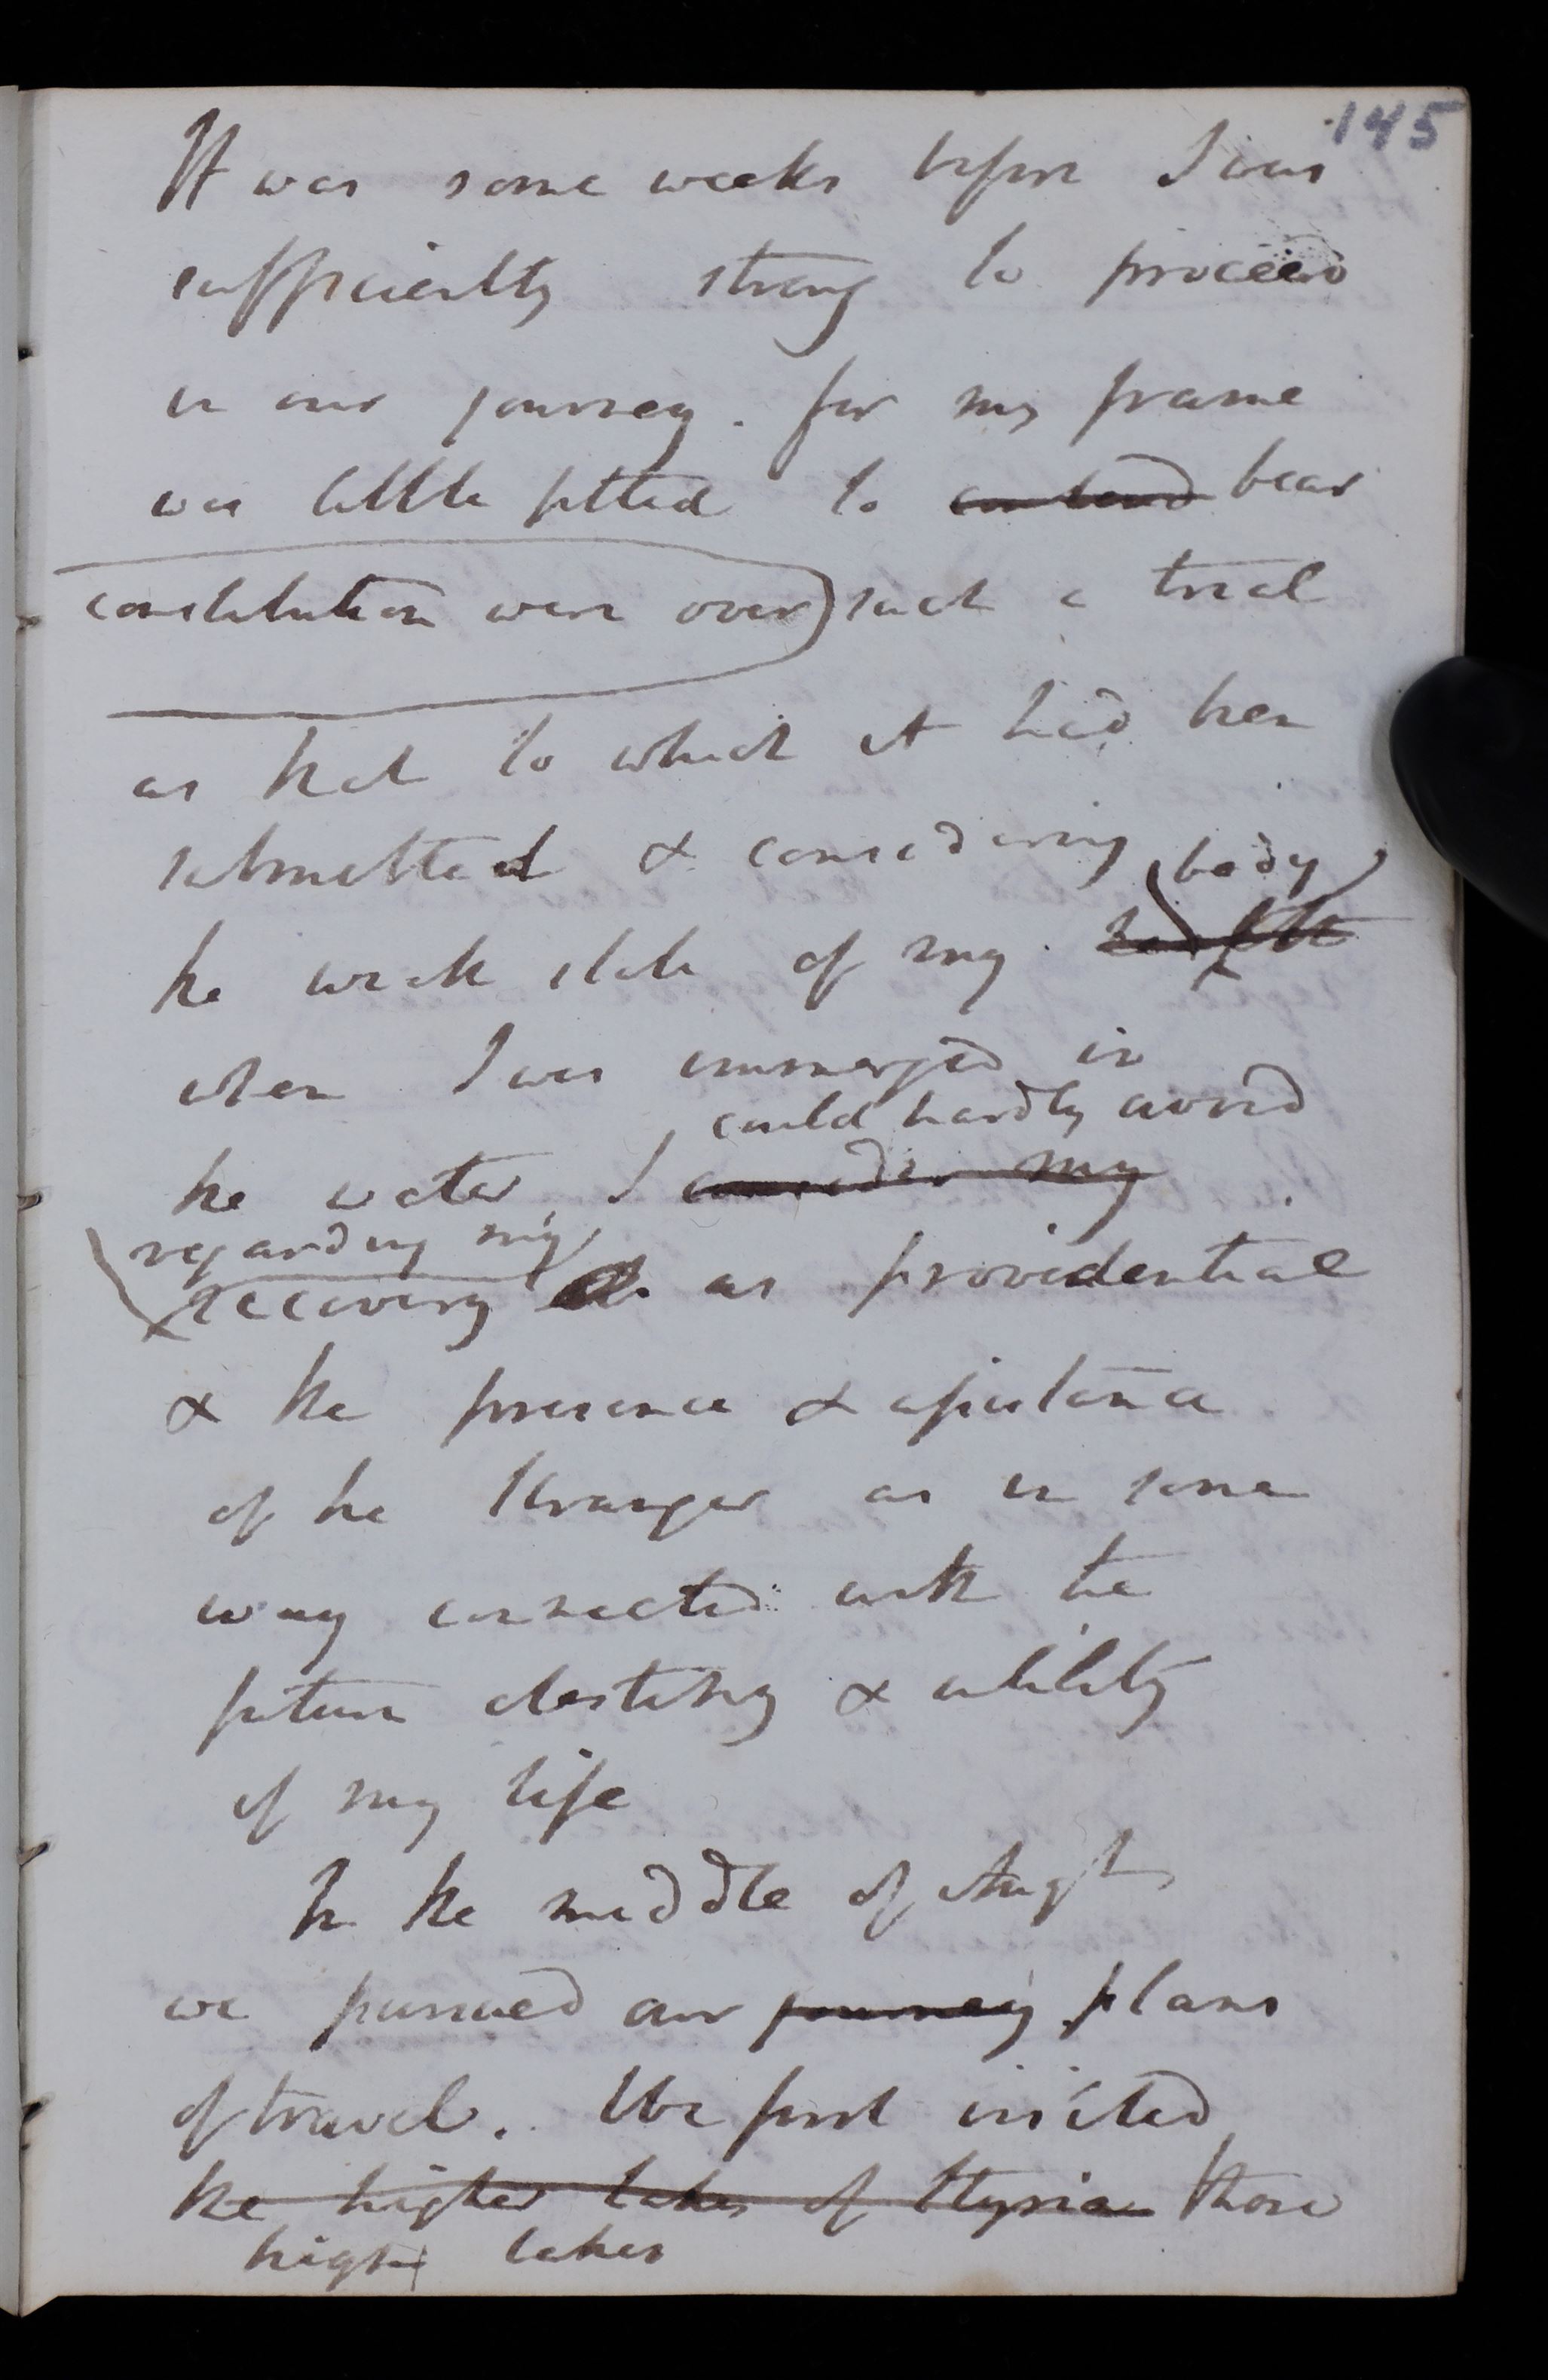 145
It was some weeks before I was
sufficiently strong to proceed
in our journey. for my frame
was little fitted to contend bear
constitution were over) such a trial
as that to which it had been
submitted & considering
body
the weak state of my health
when I was immerged in
could hardly avoid
the water, I consider my
regarding my
recovery as providential
& the presence & assistance
of the stranger as in some
way connected with the
future destiny & utility
of my life
In the middle of Augt,
we pursued our journey plans
of travel. We first visited
the higher lakes of Styria those
high lakes